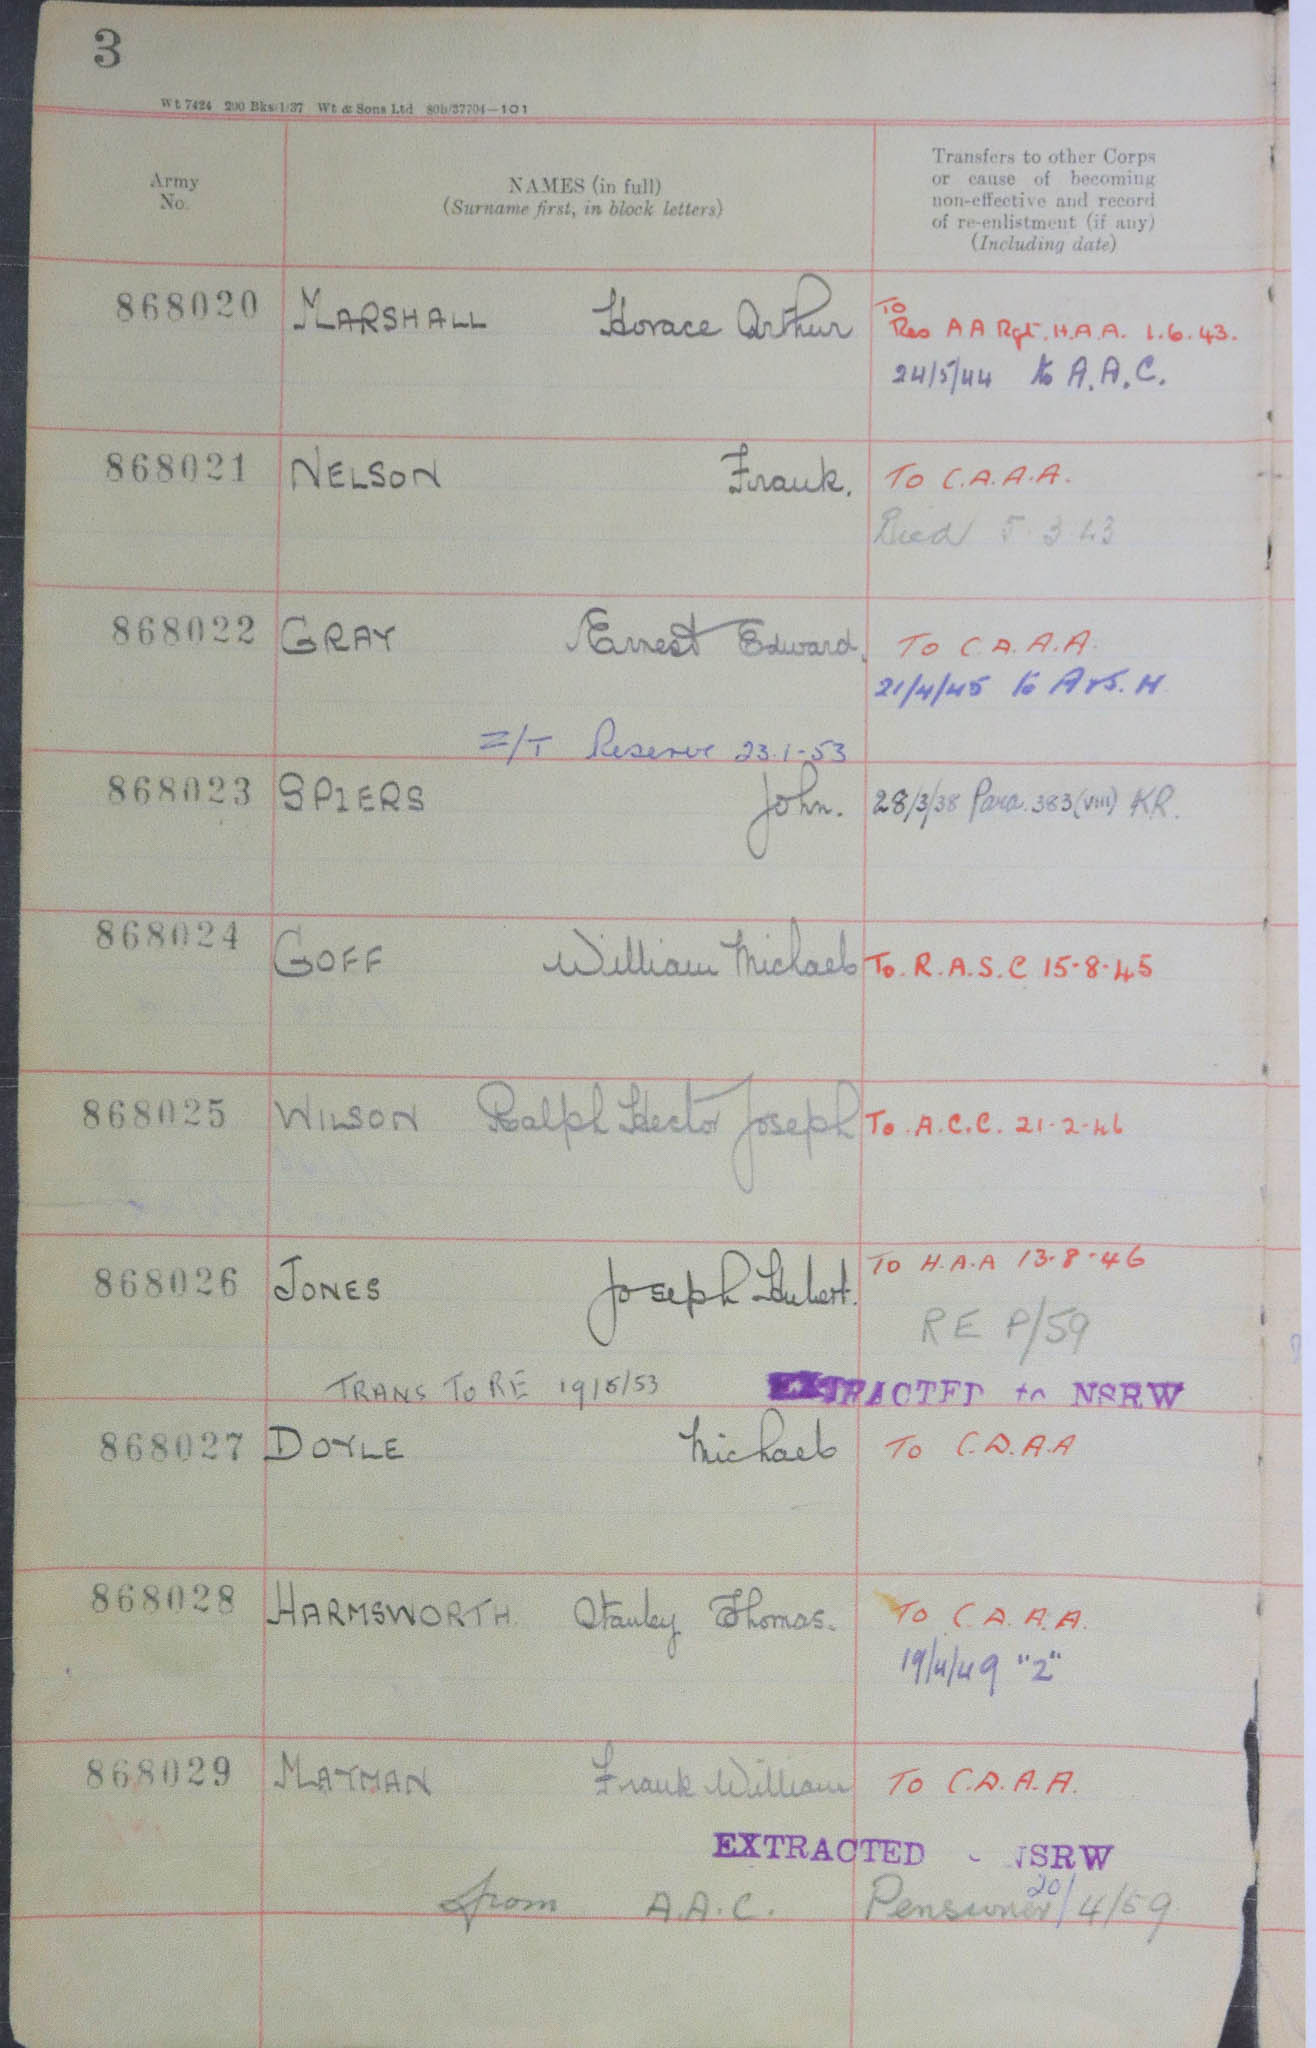 3
Wt 7424 200 Bks/1/37 Wt & Sons Ltd 80b/37704—101
Army
No.
NAMES (in full)
(Surname first, in block letters)
Transfers to other Corps
or cause of becoming
non-effective and record
of re-enlistment (if any)
(Including date)
868020 MARSHALL Horace Arthur To
Res A A Rgt. H.A.A. 1.6.43.
24/5/44 to A.A.C.
868021 NELSON Frank. To C.A.A.A.
Died 5 3 43
868022 GRAY Ernest Edward. To C.A.A.A.
21/4/45 to
Z/T Reserve 23-1-53
868023 SPIERS John. 28/3/38 Para. 383(VIII) KR.
868024 GOFF William Michael To. R.A.S.C 15-8-45
868025 WILSON Ralph Hector Joseph To. A.C.C. 21-2-46
868026 JONES Joseph Hubert. To H.A.A 13-8-46
RE P/59
TRANS TO RE 19/5/53 EXTRACTED to NSRW
868027 DOYLE Michael To C.A.A.A
868028 HARMSWORTH Stanley Thomas. To C.A.A.A.
19/4/49 "2"
868029 MAYMAN Frank William To C.A.A.A.
EXTRACTED NSRW
from A.A.C. Pensioner 20/4/59